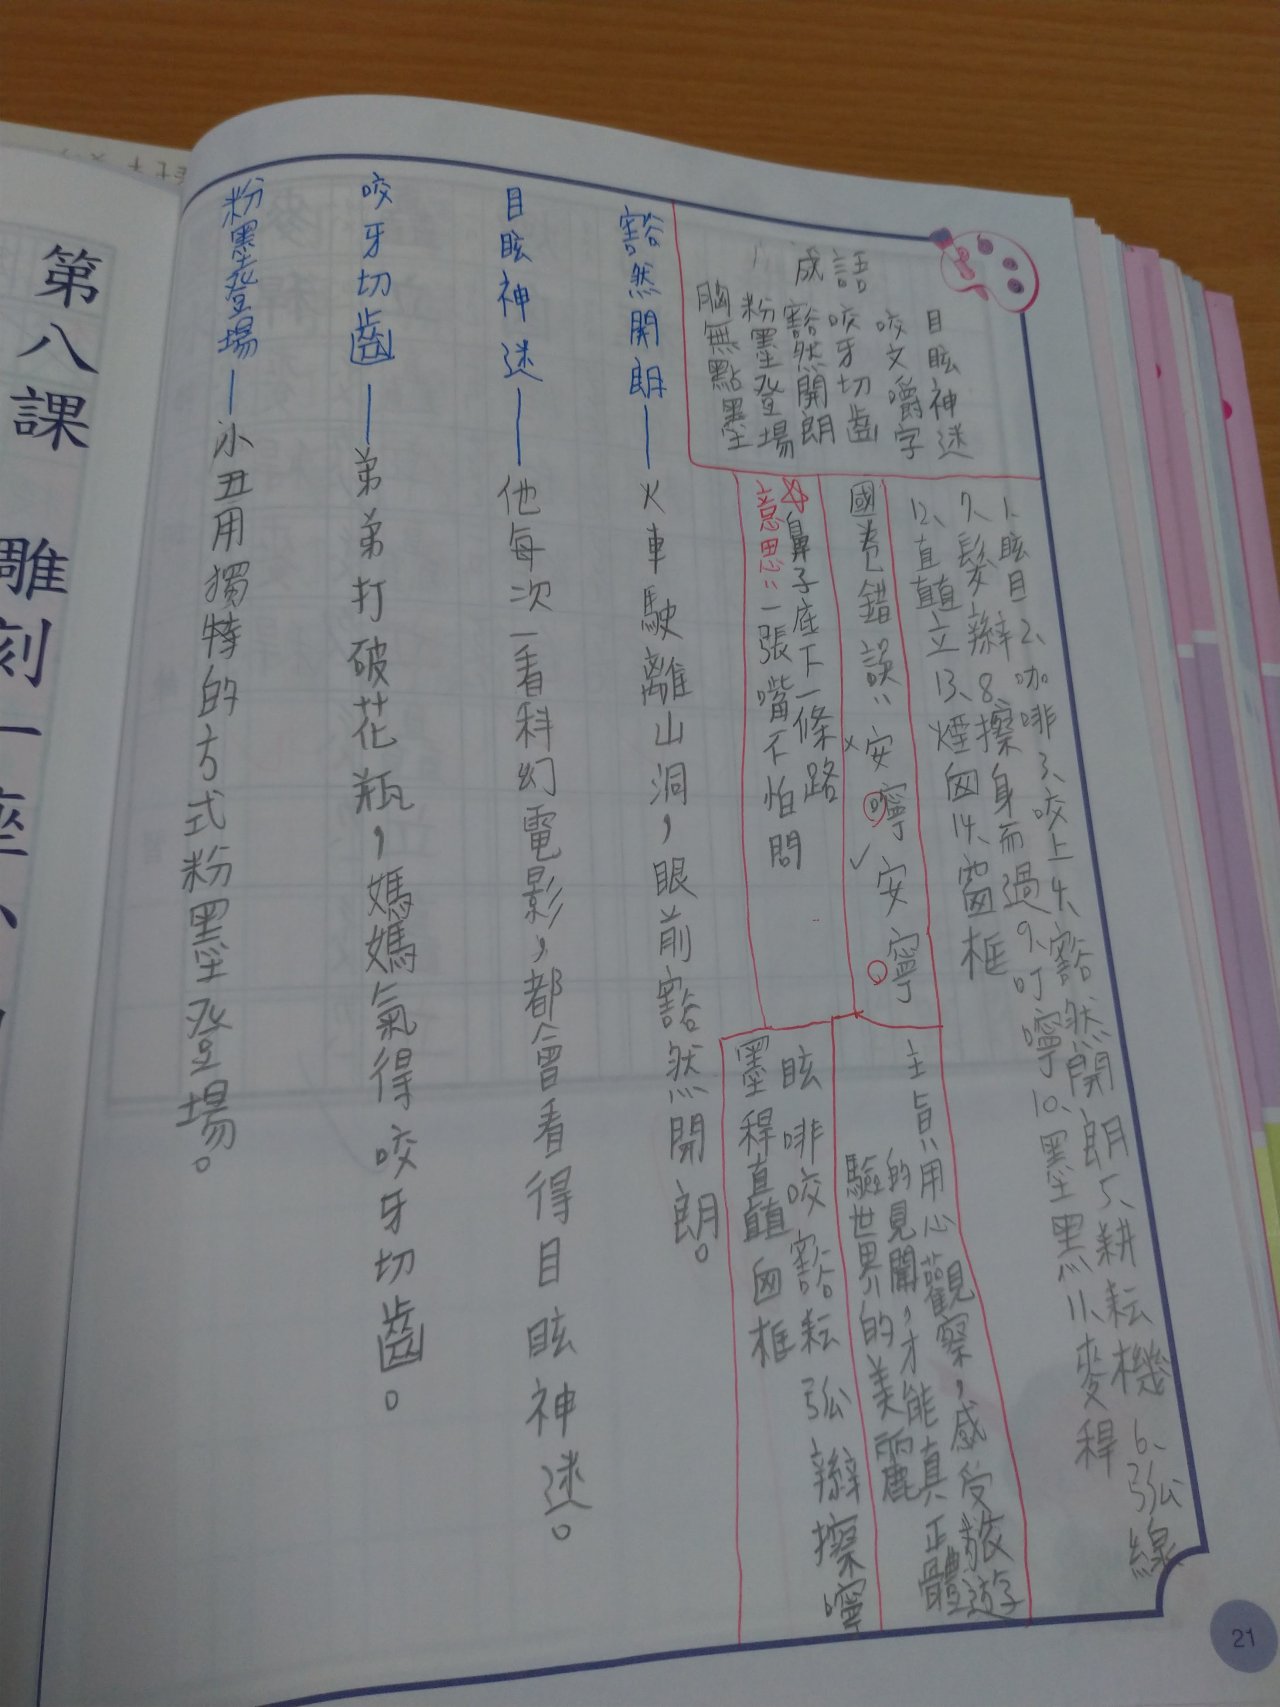 1.眩目2、咖啡3、咬上4、豁然開朗5、耕耘機6、弧線
7、髮辮8、擦身而過9、叮嚀10、墨黑11、麥稈
12、直矗立13、煙囪14、窗框
目眩神迷
咬文嚼字
成語 咬牙切齒
豁然開朗
粉墨登場
胸無點墨
國卷錯誤：×安嚀✓安寧
☆鼻子底下一條路
意思：一張嘴不怕問
主旨：用心觀察，感受旅遊
的見聞，才能真正體
驗世界的美麗
眩啡咬豁耘弧辮擦嚀
墨稈直矗囪框
豁然開朗—火車駛離山洞，眼前豁然開朗。
目眩神迷—他每次一看科幻電影，都會看得目眩神迷。
咬牙切齒—弟弟打破花瓶，媽媽氣得咬牙切齒。
粉墨登場—小丑用獨特的方式粉墨登場。
21
第八課 雕刻一座小